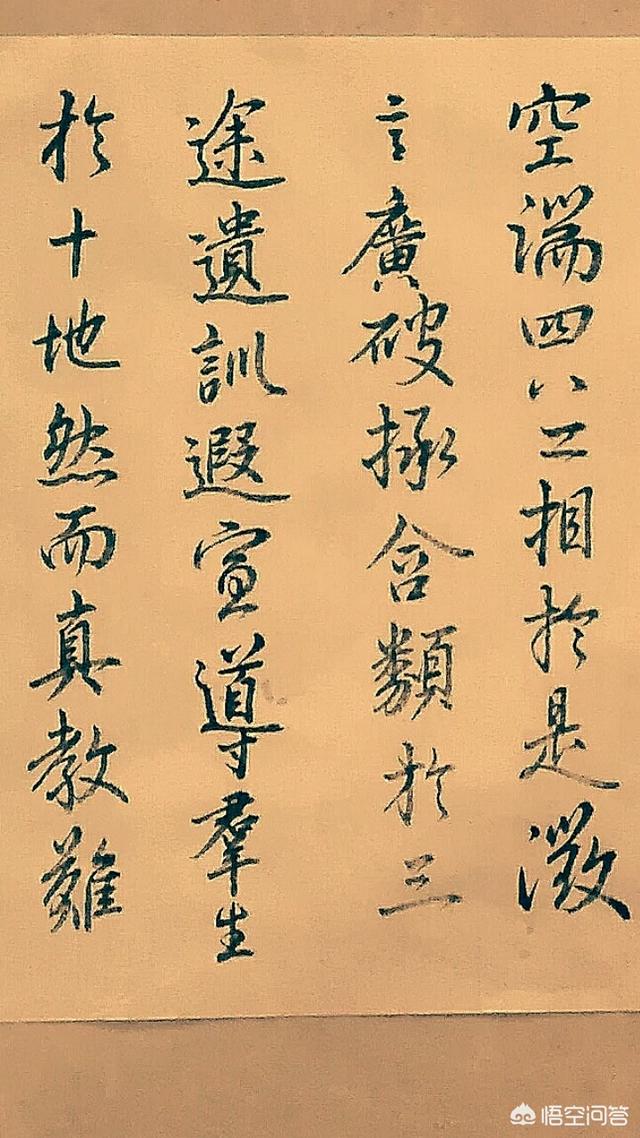 空端四八之相於是微
言廣被拯含類於三
途遺訓遐宣導羣生
於十地然而真教難
悟空问答